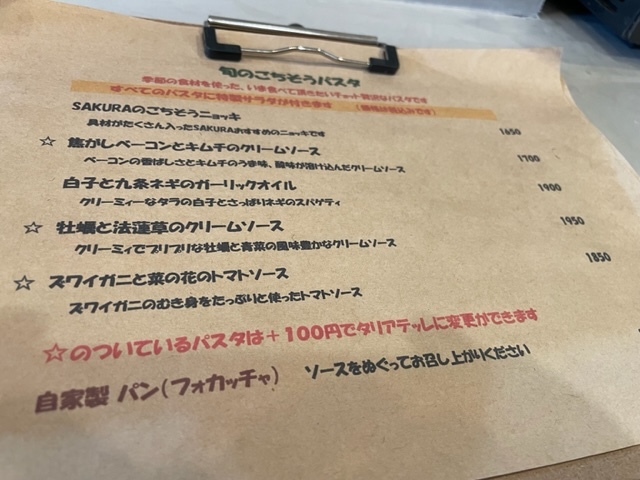 旬のごちそうパスタ
季節の食材を使った、いま食べて頂きたいチョット贅沢なパスタです
すべてのパスタに特製サラダが付きます (価格は税込みです)
SAKURAのごちそうニョッキ 1650
具材がたくさん入ったSAKURAおすすめのニョッキです
☆ 焦がしベーコンとキムチのクリームソース 1700
ベーコンの香ばしさとキムチのうま味、酸味が溶け込んだクリームソース
白子と九条ネギのガーリックオイル 1900
クリーミィーなタラの白子とさっぱりネギのスパゲティ
☆ 牡蠣と法蓮草のクリームソース 1950
クリーミィでプリプリな牡蠣と青菜の風味豊かなクリームソース
☆ ズワイガニと菜の花のトマトソース 1850
ズワイガニのむき身をたっぷりと使ったトマトソース
☆のついているパスタは＋100円でタリアテッレに変更ができます
自家製 パン(フォカッチャ) ソースをぬぐってお召し上がりください